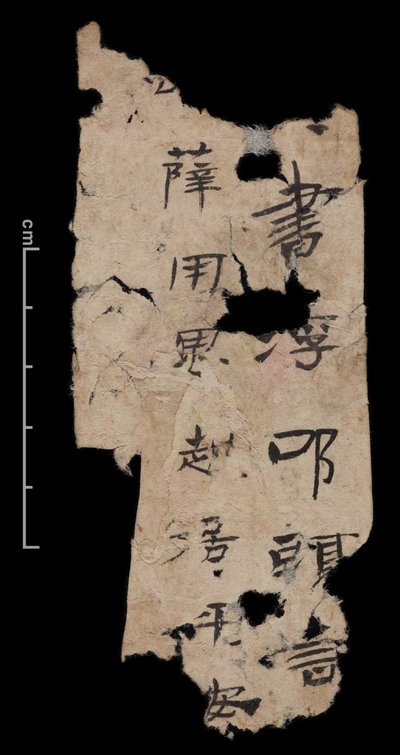 書浮叩頭言
薛用思起居平安